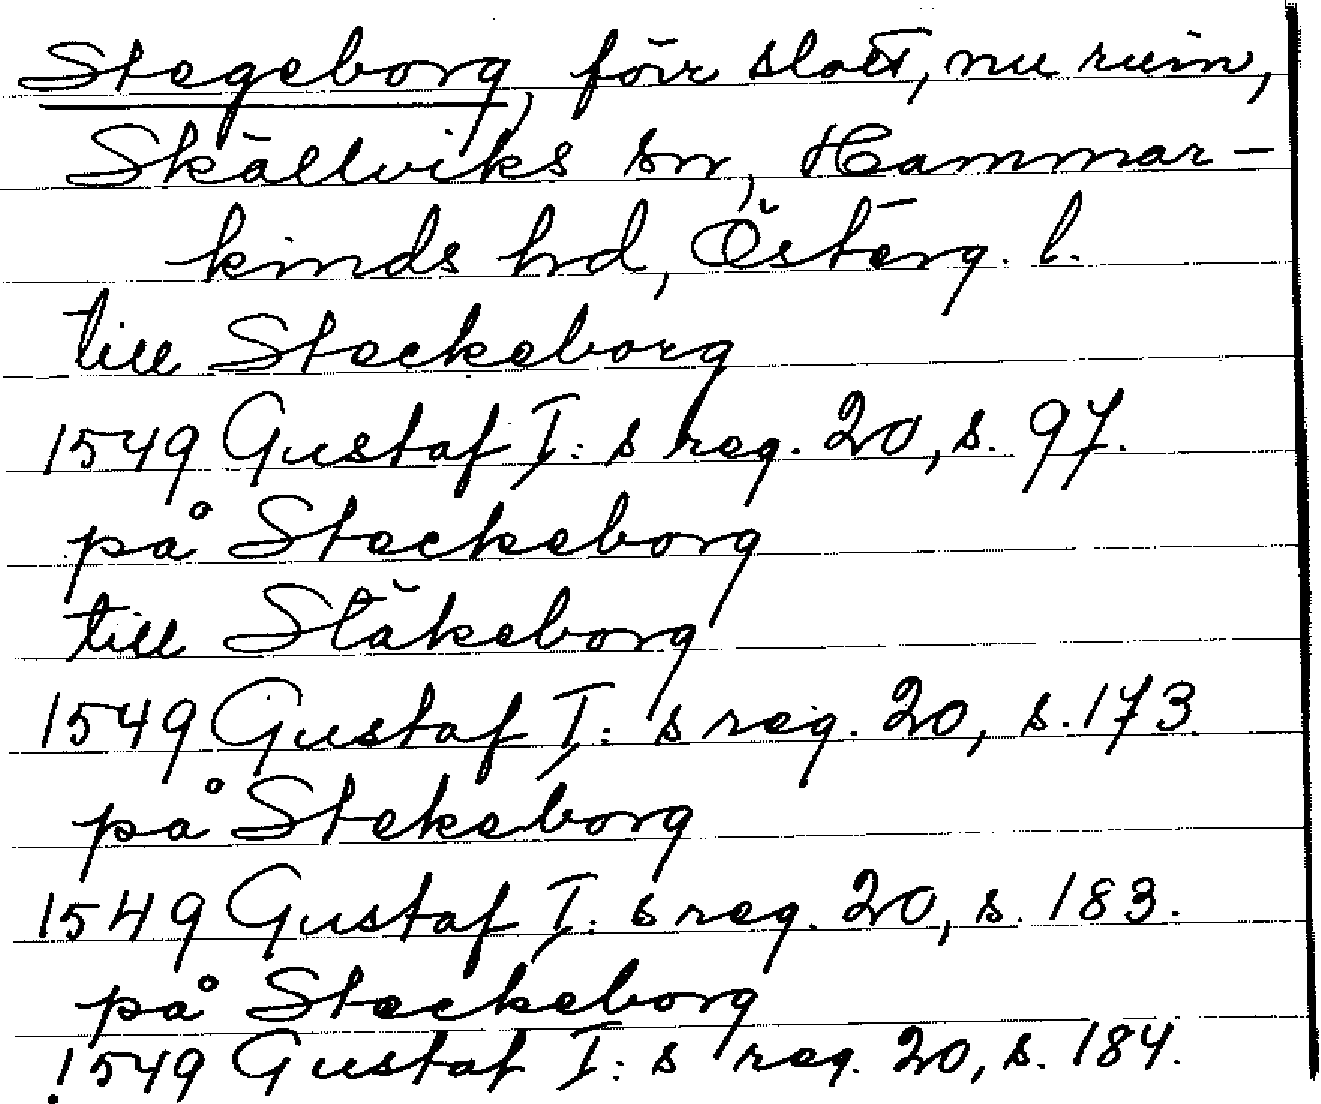 Stegeborg, förr slott, nu ruin,
Skällviks sn, Hammar-
kinds hd, Österg. l.
till Steckeborg
1549 Gustaf I:s reg. 20, s. 97.
på Steckeborg
till Stäkeborg
1549 Gustaf I:s reg. 20, s. 173.
på Stekeborg
1549 Gustaf I:s reg. 20, s. 183.
på Steckeborg
1549 Gustaf I:s reg. 20, s. 184.